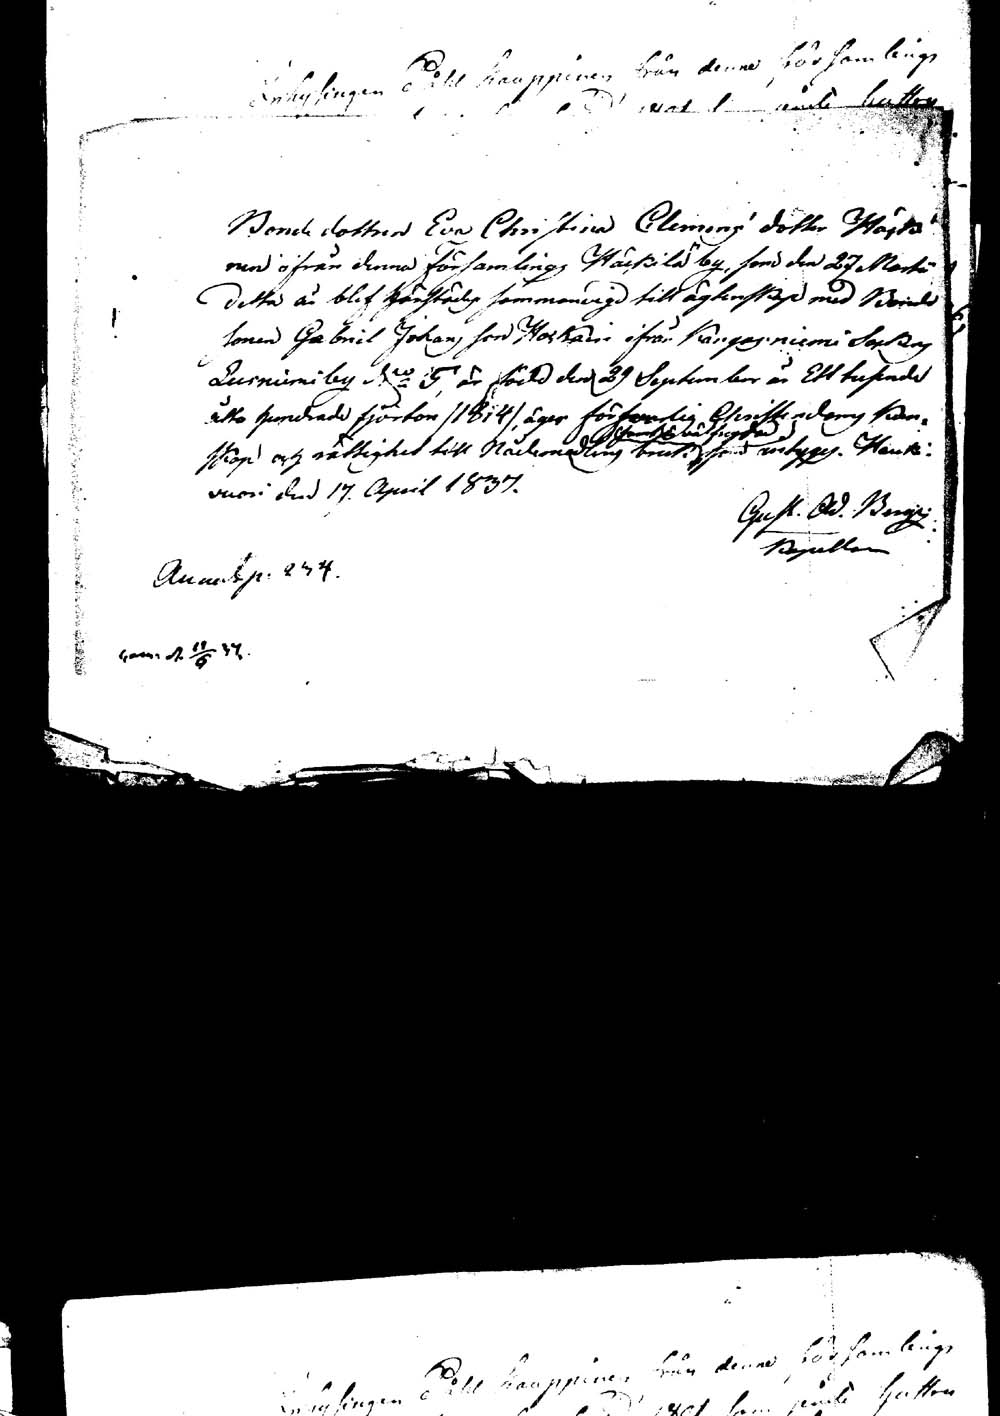 Inhysingen Påhl Kauppinen från denne församlings
hustru
Bonde dottren Eva Christina Clemens dotter Häski
nen ifrån denna församlings Häskilä by, som den 27 Martii
detta år blef härstädes sammanvigd till ägtenskap med Bonde
sonen Gabriel Johans son Haskain ifrån Kangasniemi Sockn
Lusniemi by No 5, är född den 29 September år Ett tusende
åtta hundrade fjorton /1814/, äger försvarlig Christendoms kun-
skap och rättighet till Nådemedlens bruk, samt är
vuori den 17 April 1837.
Gust. Ad. Bergh
Kapellan
Anmält p. 234.
11/6 37.
Inhysingen Påhl Kauppinen från denne församlings
som hustru